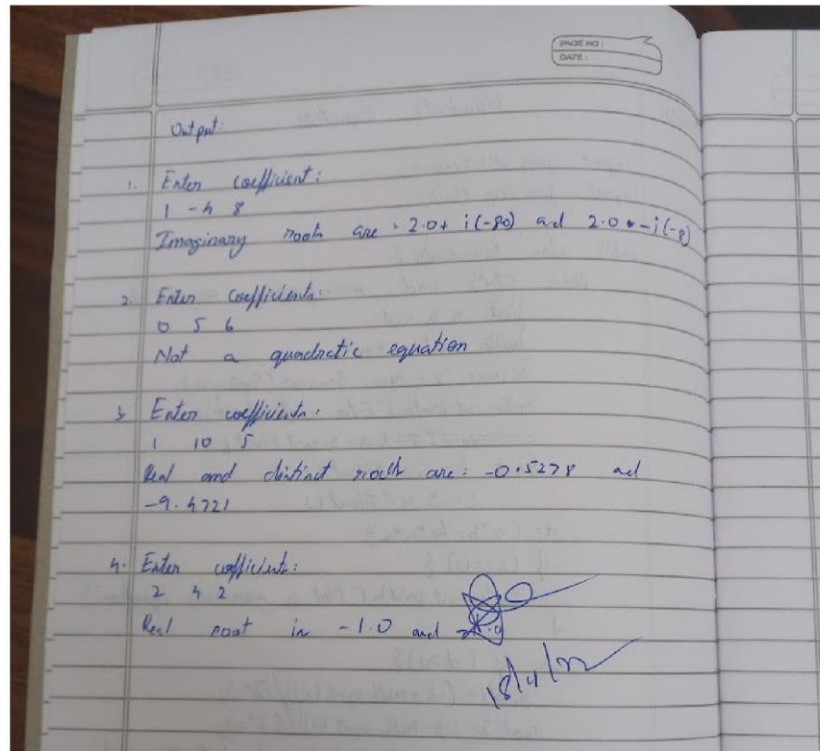 PAGE NO :
DATE :
Output:
1. Enter coefficient:
1 -4 8
Imaginary roots are : 2.0+ i(-80) and 2.0 + -i(-8)
2. Enter coefficients:
0 5 6
Not a quadractic equation
3. Enter coefficients:
1 10 5
Real and distinct roots are: -0.5278 and
-9.4721
4. Enter coefficients:
2 4 2
Real root is -1.0 and